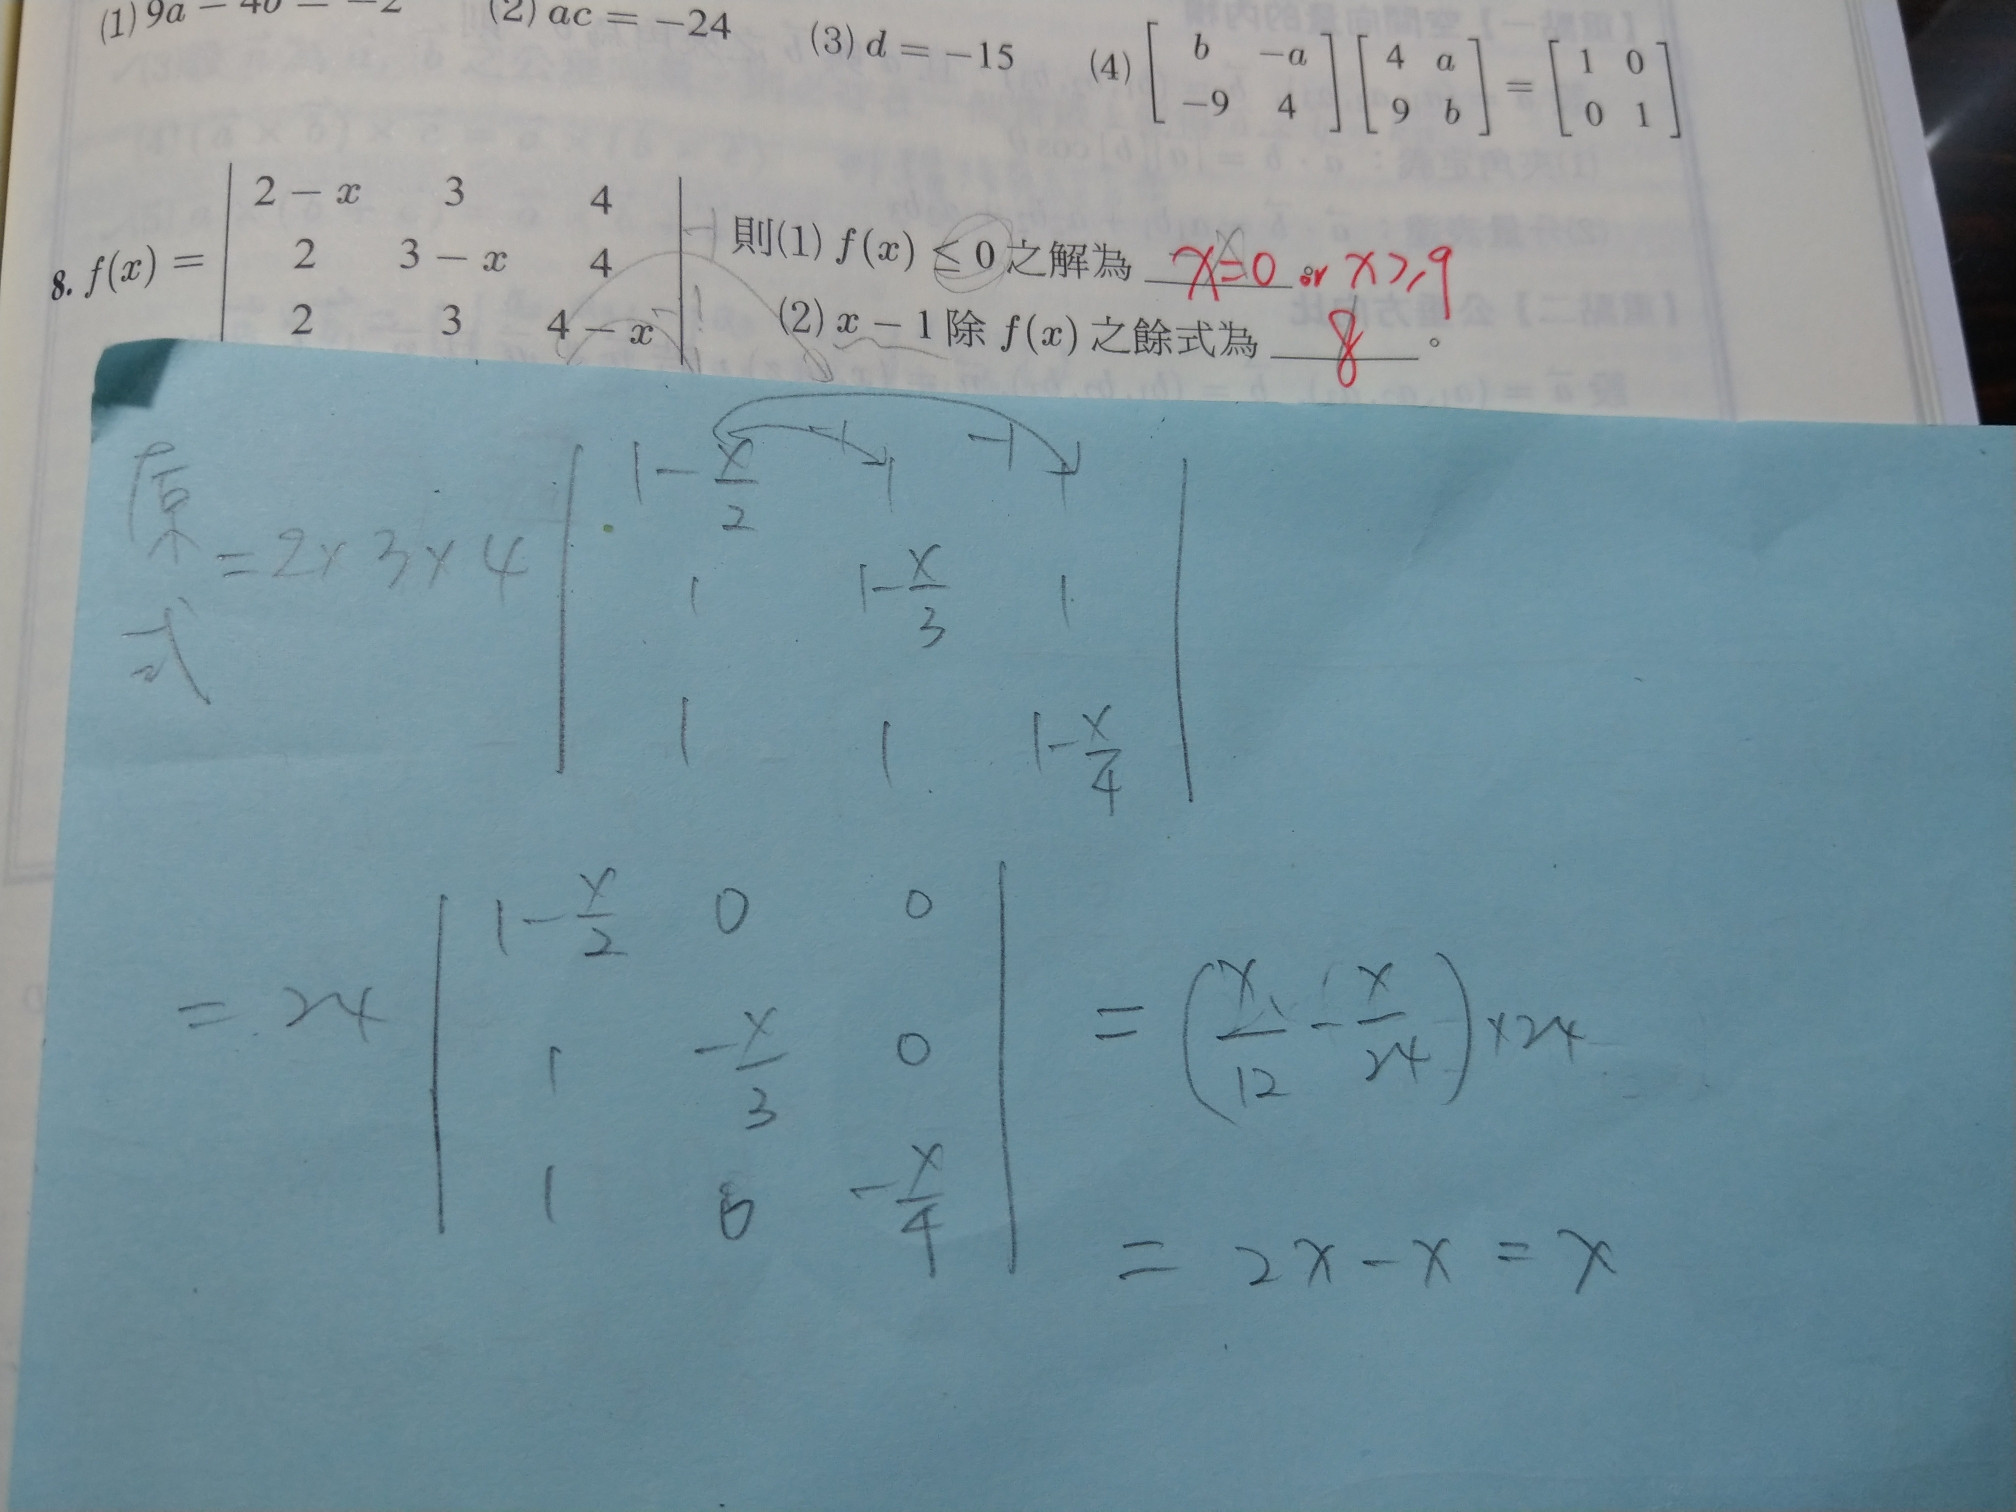 (1) 9a − 4b = −2 (2) ac = −24 (3) d = −15 (4) [b −a; −9 4][4 a; 9 b] = [1 0; 0 1]
8. f(x) = |2−x 3 4; 2 3−x 4; 2 3 4−x| 則(1) f(x) ≤ 0 之解為 x=0 or x≥9
(2) x − 1 除 f(x) 之餘式為 8 。
原式 = 2×3×4 |1−x/2 1 1; 1 1−x/3 1; 1 1 1−x/4|
−1 −1
= 24 |1−x/2 0 0; 1 −x/3 0; 1 0 −x/4| = (x/12 − x/24)×24
= 2x − x = x